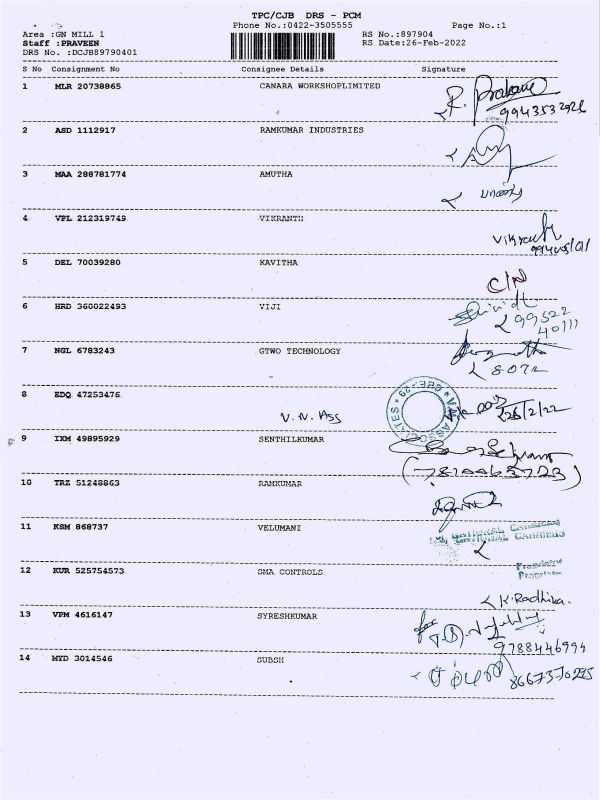 TPC/CJB DRS - PCM
Phone No.:0422-3505555 Page No.:1
Area :GN MILL 1 RS No.:897904
Staff :PRAVEEN RS Date:26-Feb-2022
DRS No. :DCJB89790401
S No Consignment No Consignee Details Signature
1 MLR 20738865 CANARA WORKSHOPLIMITED
9943532926
2 ASD 1112917 RAMKUMAR INDUSTRIES
3 MAA 288781774 AMUTHA
4 VPL 212319749 VIKRANTH
5 DEL 70039280 KAVITHA
C/N
6 HRD 360022493 VIJI
99522
40111
7 NGL 6783243 GTWO TECHNOLOGY
8072
8 EDQ 47253476
V. N. Ass 26/2/22
9 IXM 49895929 SENTHILKUMAR
10 TRZ 51248863 RAMKUMAR
11 KSM 868737 VELUMANI
Proprietor
12 KUR 525754573 SMA CONTROLS
K. Radhika.
13 VPM 4616147 SYRESHKUMAR
9788446994
14 MYD 3014546 SUBSH